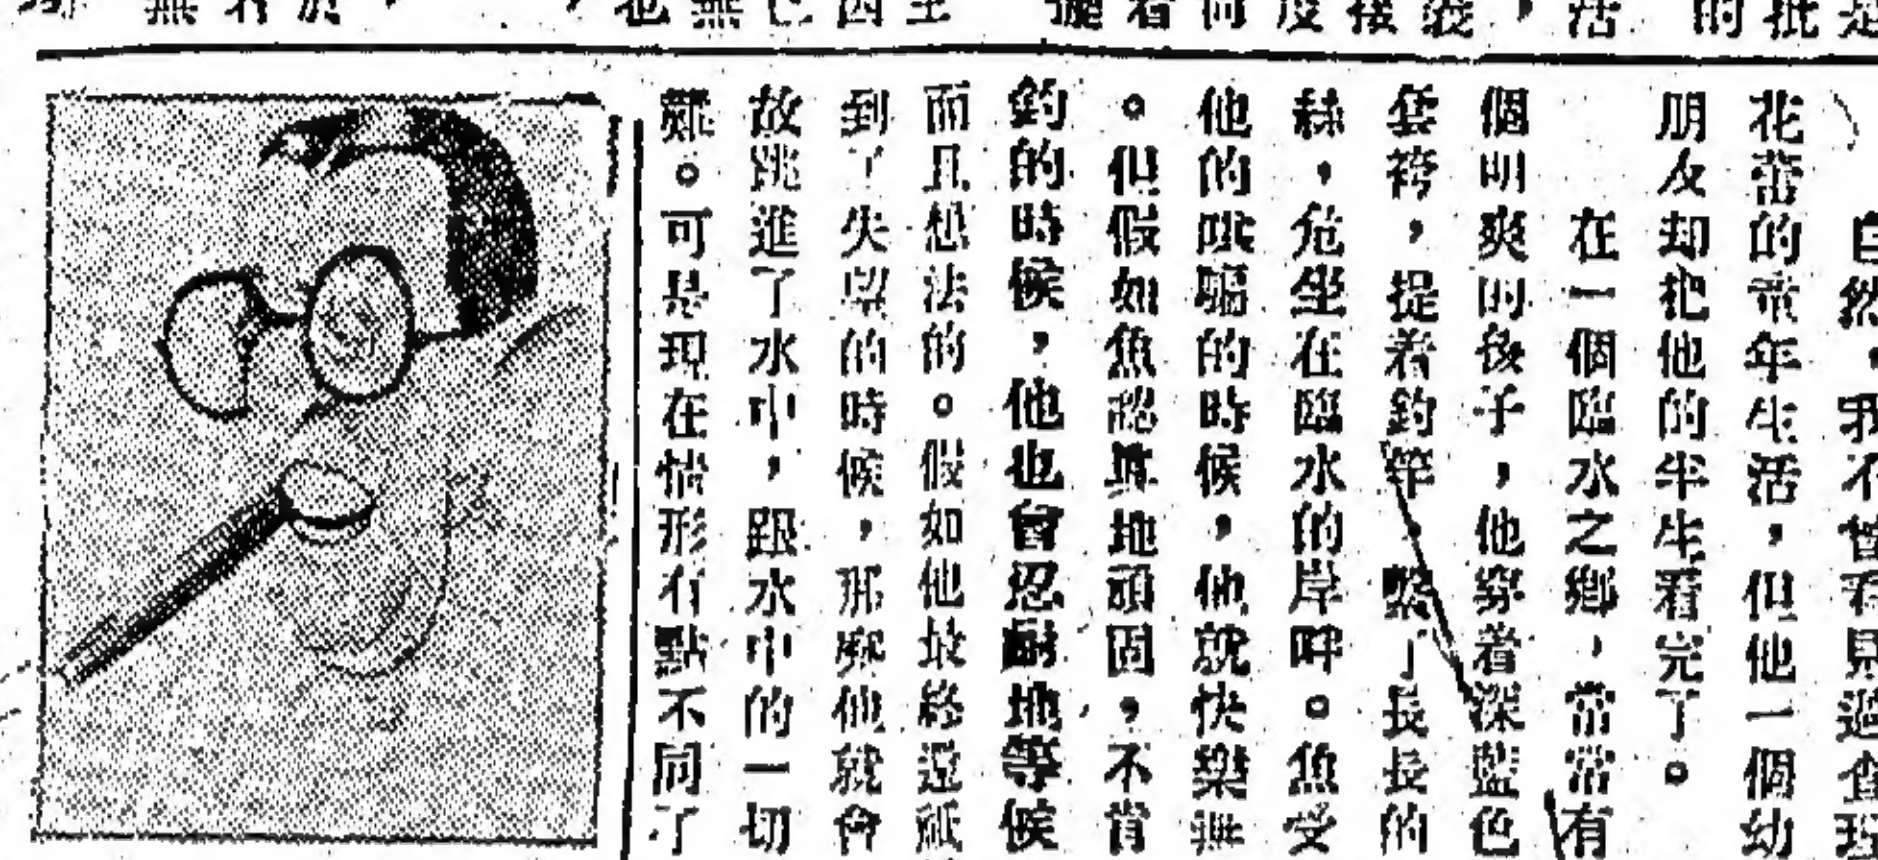 自然，我不曾看見過查理
花蕾的童年生活，但他一個幼
朋友却把他的半生看完了。
在一個臨水之鄉，常常有
個明爽的後子，他穿着深藍色
套袴，提着釣竿，繫了長長的
絲，危坐在臨水的岸畔。魚受
他的欺騙的時候，他就快樂無
。但假如魚認真地頑固，不肯
釣的時候，他也會忍耐地等候
而且想法的。假如他最終還祇
到了失望的時候，那麼他就會
故跳進了水中，跟水中的一切
難。可是現在情形有點不同了